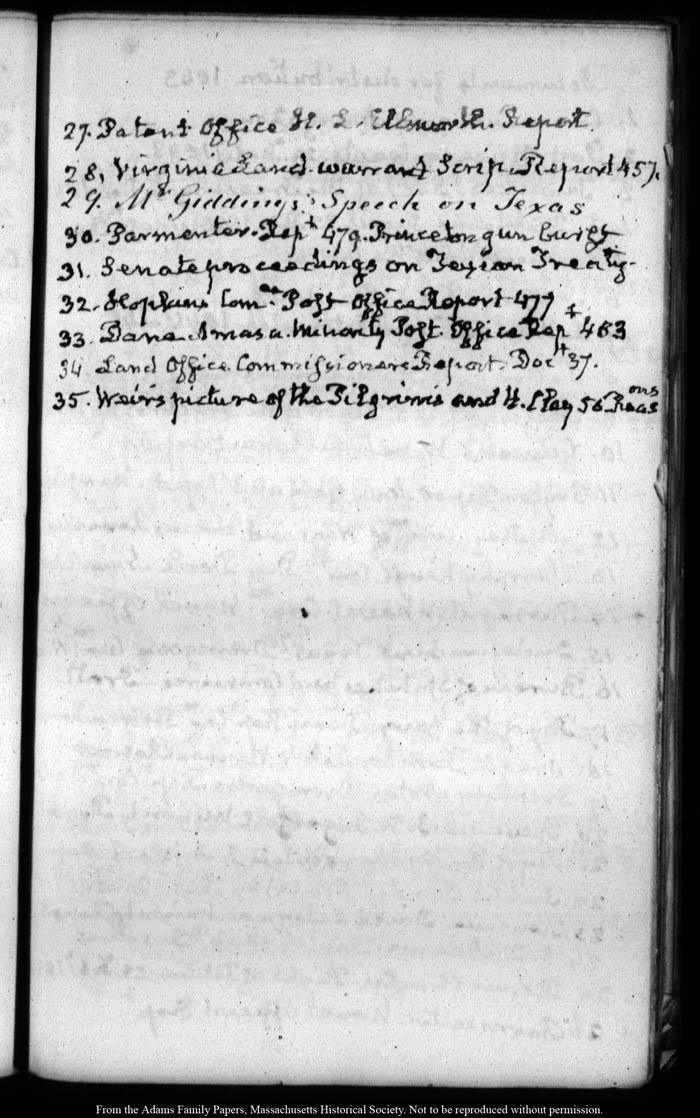 27. Patent Office H. L. Ellsworth. Report.
28. Virginia Land warrant Scrip. Report 457.
29. Mr Giddings's Speech on Texas
30. Parmenter. Rept 479. Princeton gun burst
31. Senate proceedings on Texian Treaty.
32. Hopkins Comee Post Office Report 477
33. Dana Amasa. Minority Post. Office Rept 483
34 Land Office. Commissioners Report. Doct 37.
35. Weir's picture of the Pilgrims and H. Clay 50
From the Adams Family Papers, Massachusetts Historical Society. Not to be reproduced without permission.